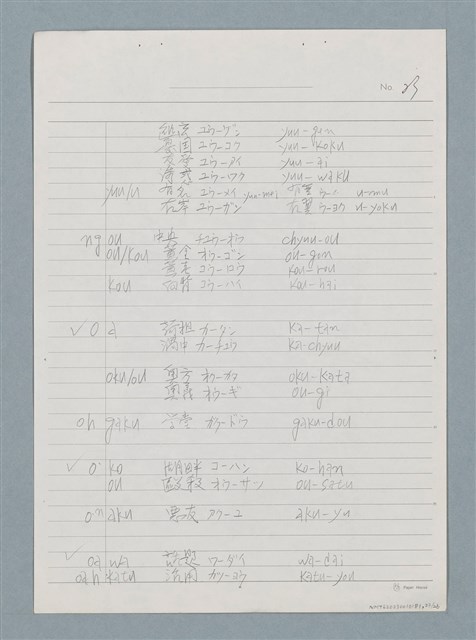 No. 23
ユウーゲン yuu-gen
ユウーコク yuu-koku
ユウーアイ yuu-ai
ユウーワク yuu-waku
yuu/u 有名 ユウーメイ yuu-mei 有 u-mu
右岸 ユウーガン 右翼 ウーヨク u-yoku
ng ou 中央 チュウーオウ chyuu-ou
ou/kou 黄金 オウーゴン ou-gon
コウーロウ kou-rou
kou コウーハイ kou-hai
✓ O a カータン ka-tan
渦中 カーチュウ ka-chyuu
oku/ou 奥方 オクーガタ oku-kata
奥義 オウーギ ou-gi
oh gaku 学堂 ガクードウ gaku-dou
✓ o· ko 湖畔 コーハン ko-han
ou オウーサツ ou-satu
on aku 悪友 アクーユウ aku-yu
✓ oa wa 話題 ワーダイ wa-dai
oah katu 活用 カツーヨウ katu-you